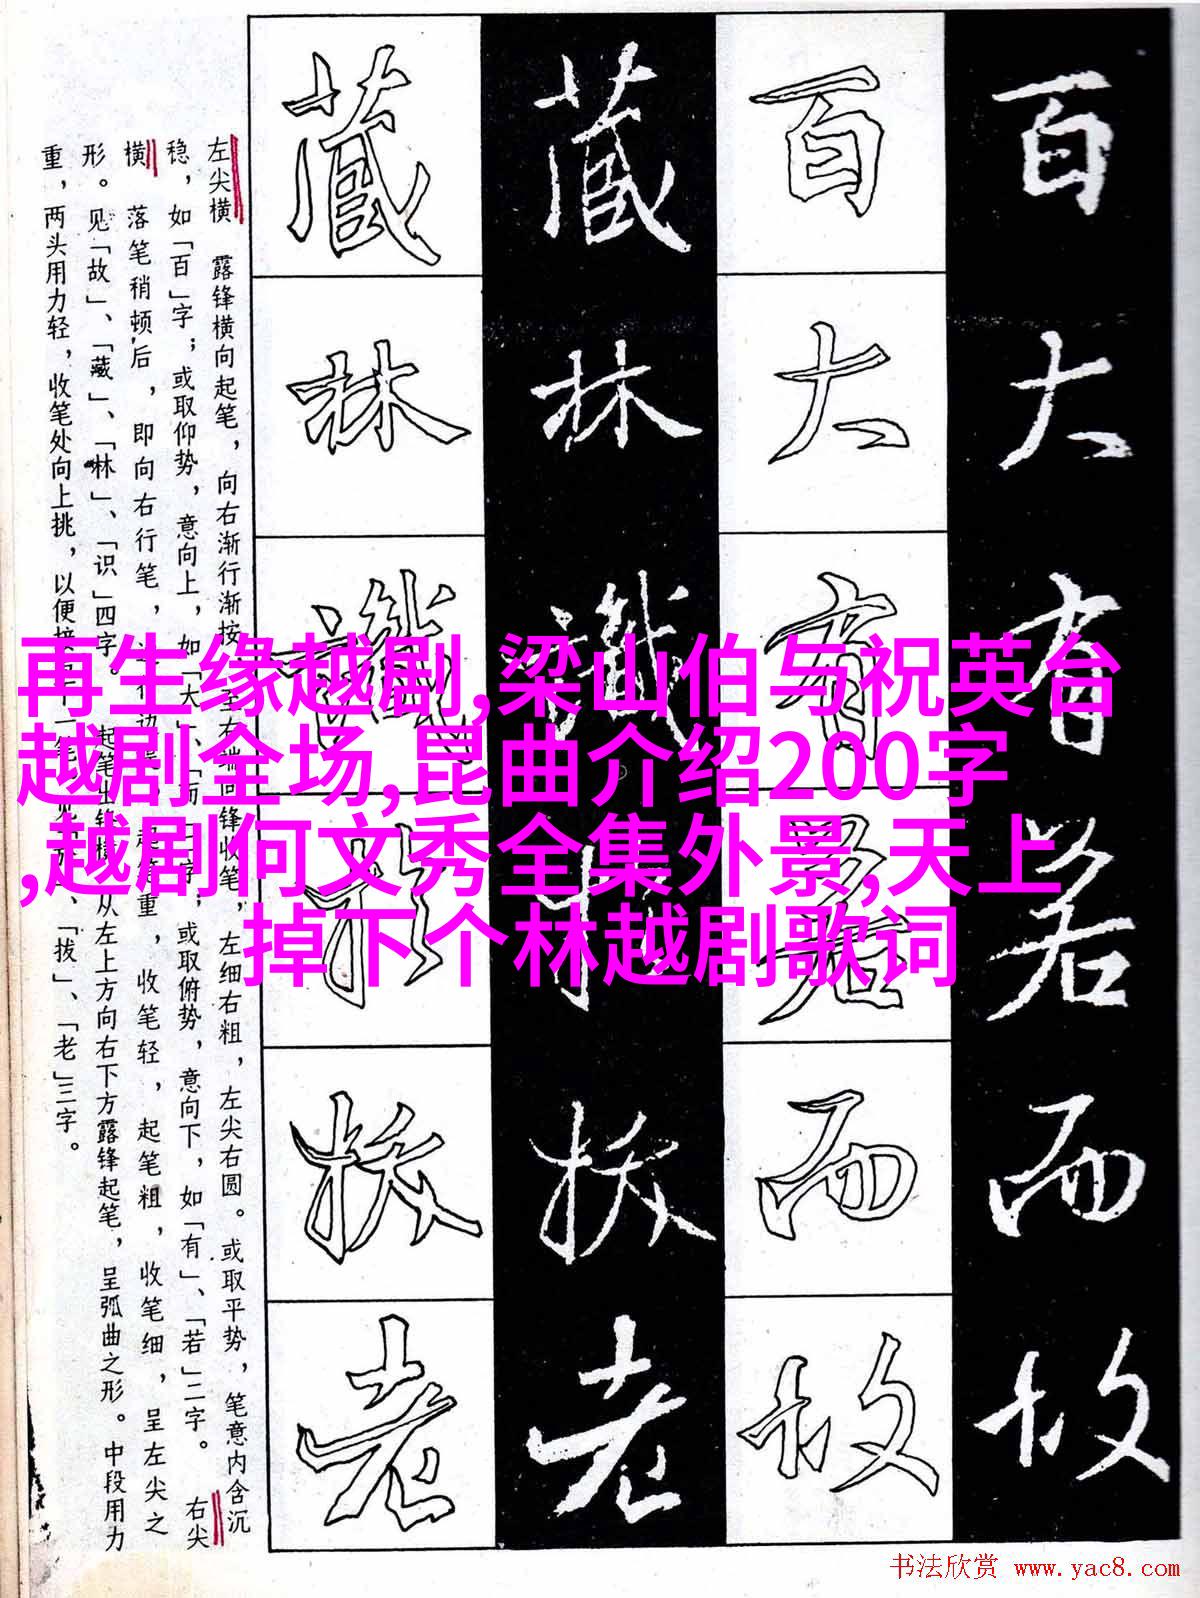 再生缘越剧,梁山伯与祝英台
越剧全场,昆曲介绍200字
,越剧何文秀全集外景,天上
掉下个林越剧歌词
百
大
有
若
而
故
百
大
有
若
而
故
藏
林
識
拔
老
藏
林
識
拔
老
左尖横 露锋横向起笔，向右渐行渐按，至右端回锋收笔，左细右粗，左尖右圆。或取平势，笔意内含沉
稳，如「百」字；或取仰势，意向上，如「大」、「而」二字；或取俯势，意向下，如「有」、「若」二字。 右尖
横 落笔稍顿后，即向右行笔，边 起笔重，收笔轻，起笔粗，收笔细，呈左尖之
形。见「故」、「藏」、「林」、「识」四字。 起笔出锋横 从左上方向右下方露锋起笔，呈弧曲之形。中段用力
重，两头用力轻，收笔处向上挑，以便接 下一 见 、「拔」、「老」三字。
书法欣赏 www.yac8.com